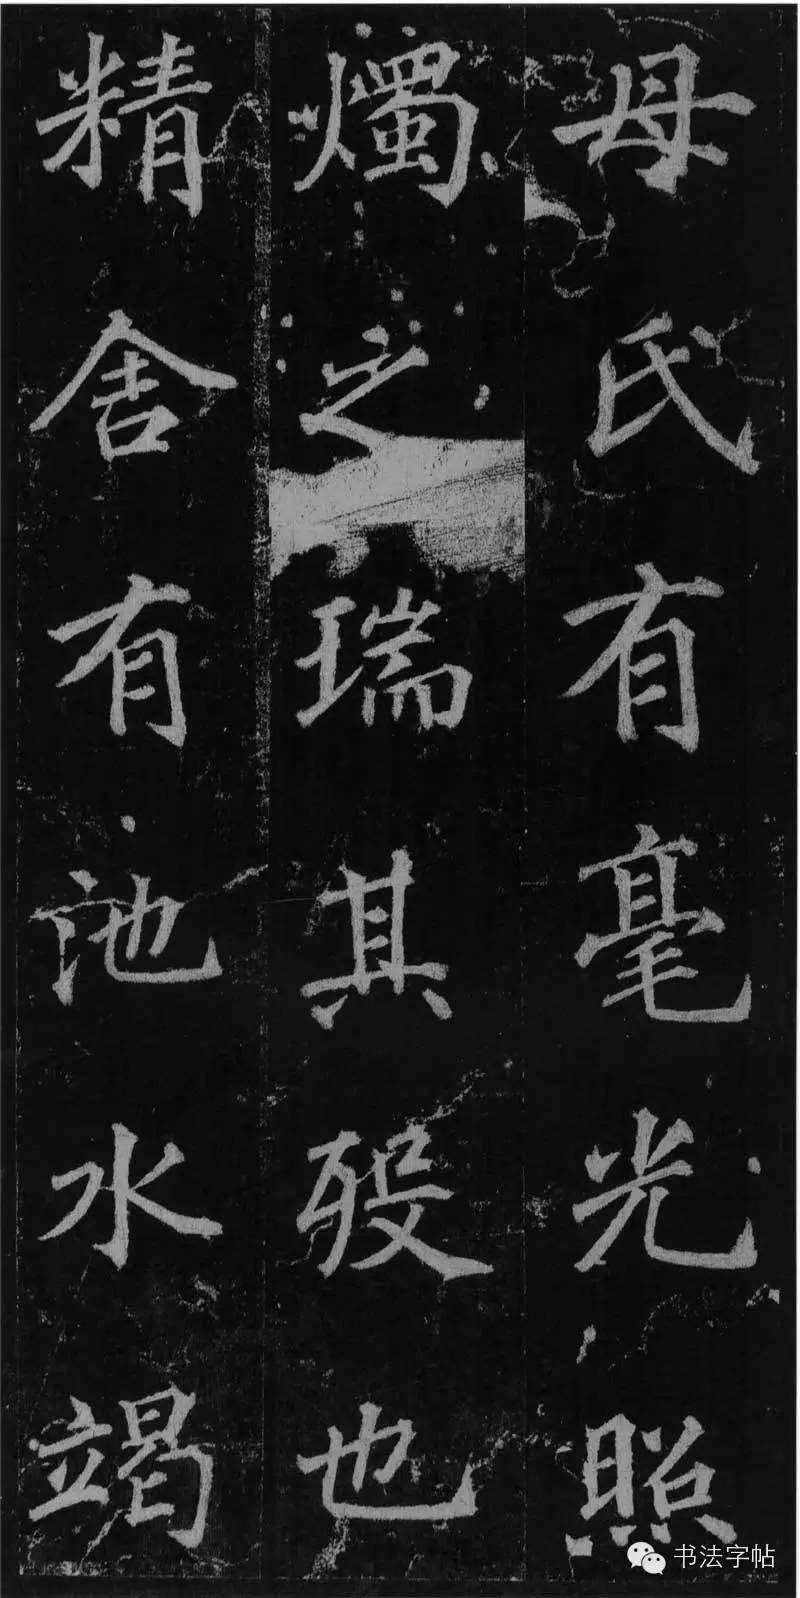 母氏有毫光照
燭之瑞其歿也
精舍有池水竭
书法字帖